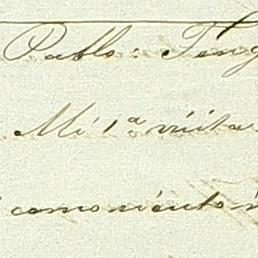 Pablo: Teng
Mi 1ª visita
como siento